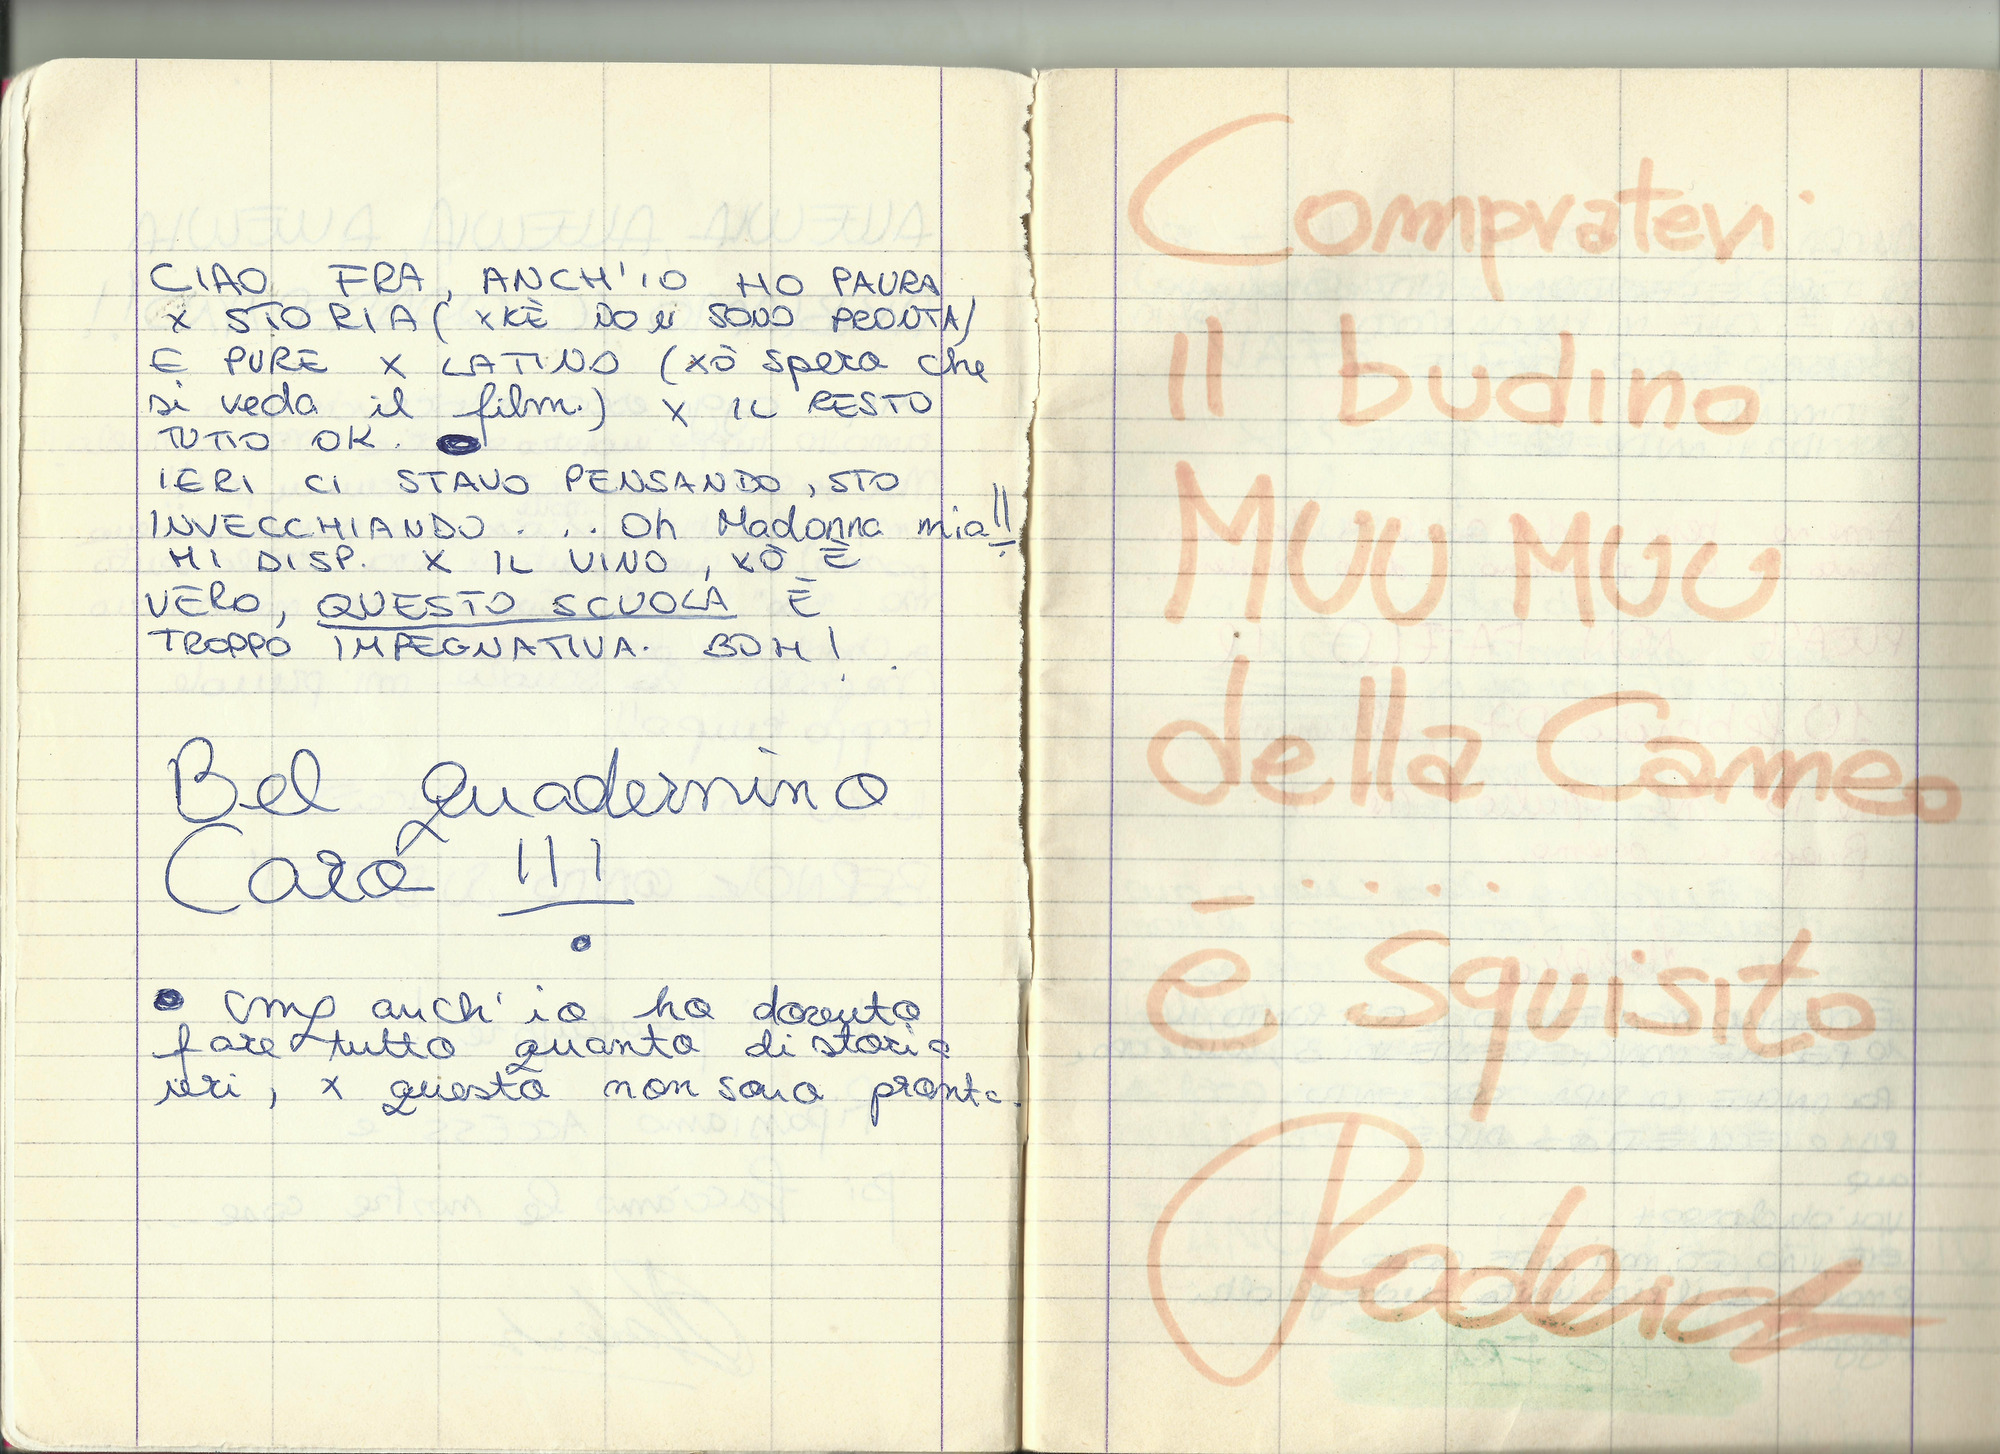 CIAO FRA, ANCH'IO HO PAURA
X STORIA (XKÈ NON SONO PRONTA)
E PURE X LATINO (XÒ spero che
si veda il film.) X IL RESTO
TUTTO OK.
IERI CI STAVO PENSANDO, STO
INVECCHIANDO.... Oh Madonna mia!!
MI DISP. X IL VINO, XÒ È
VERO, QUESTO SCUOLA È
TROPPO IMPEGNATIVA. BOH!
Bel quadernino
Caro !!!
Cmq anch'io ho dovuto
fare tutto quanto di storia
ieri, x questo non sono pronta.
Compratevi
Il budino
MUU MUU
della Cameo
.....
è squisito